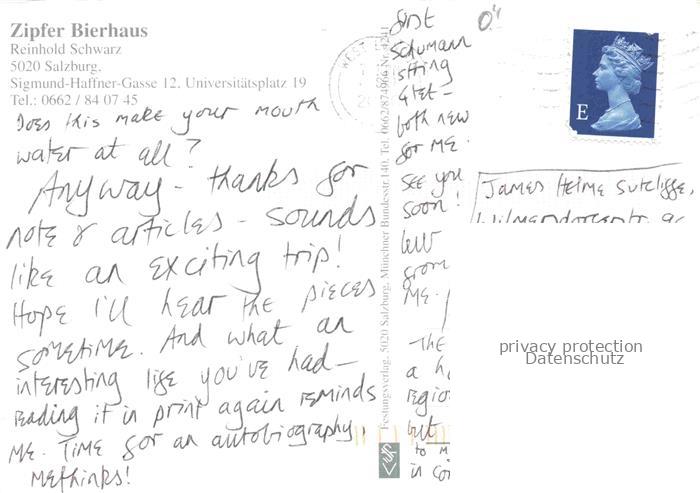 Zipfer Bierhaus
Reinhold Schwarz
5020 Salzburg,
Sigmund-Haffner-Gasse 12, Universitätsplatz 19
Tel.: 0662 / 84 07 45
Does this make your mouth
water at all?
Anyway - thanks for
note & articles - sounds
like an exciting trip!
Hope I'll hear the pieces
sometime. And what an
interesting life you've had -
reading it in print again reminds
me. Time for an autobiography,
methinks!
Festungsverlag, 5020 Salzburg, Münchner Bundesstr. 140, Tel. 0662/874966 Nr. 4241
first
Schumann
string
4tet -
both new
for me.
See you
soon!
from
me.
The
a
region
but
to
in
WEST E
E
James Helme Sutcliffe,
privacy protection
Datenschutz